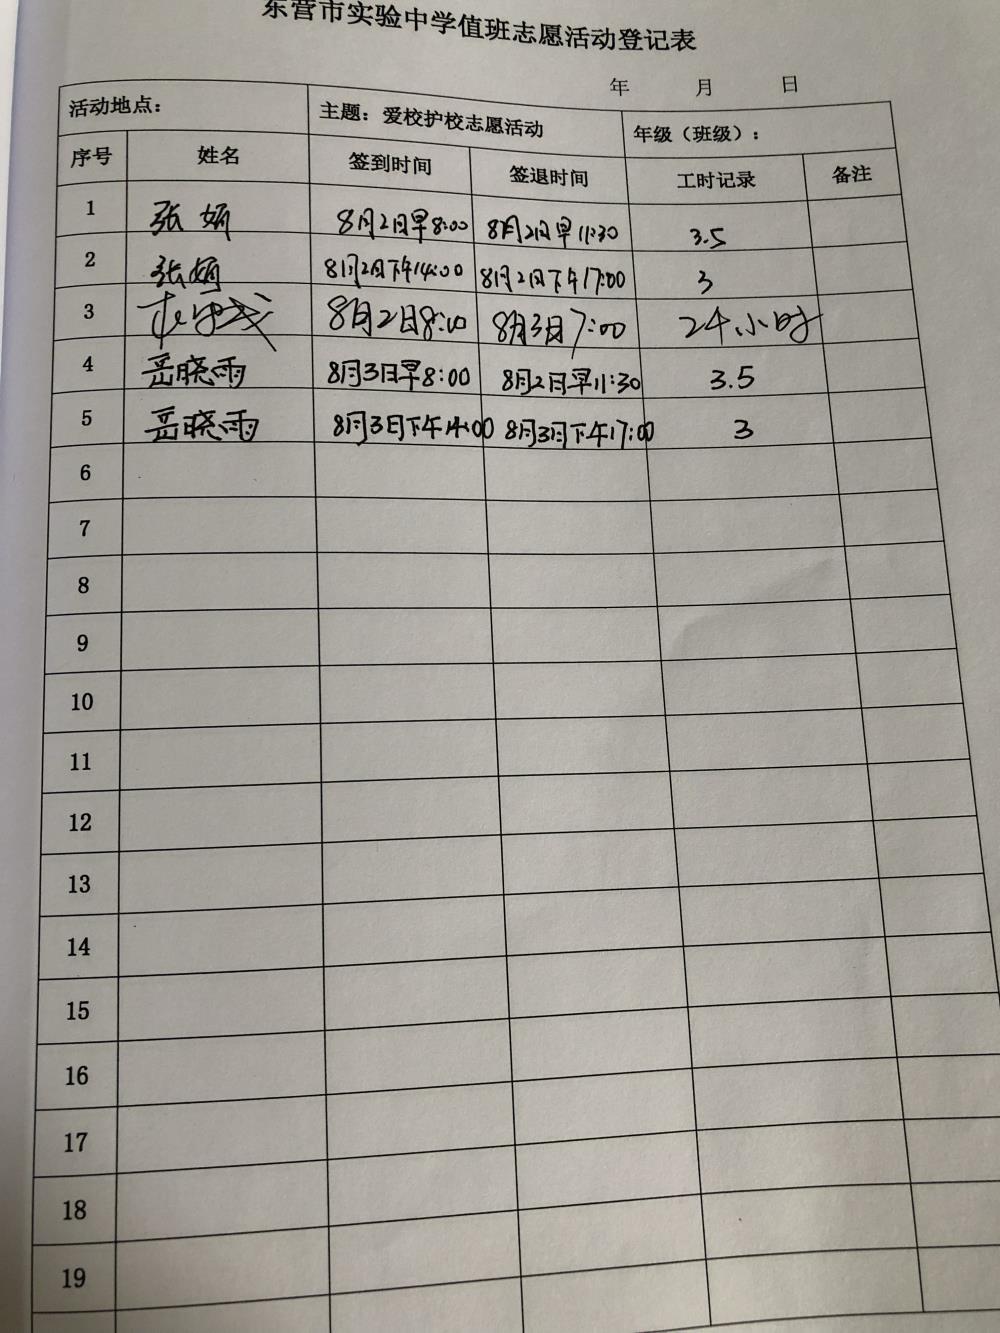 东营市实验中学值班志愿活动登记表
年 月 日
活动地点： 主题：爱校护校志愿活动 年级（班级）：
序号 姓名 签到时间 签退时间 工时记录 备注
1 张娟 8月2日早8:00 8月2日早11:30 3.5
2 张娟 8月2日下午14:00 8月2日下午17:00 3
3 8月2日8:00 8月3日7:00 24小时
4 岳晓雨 8月3日早8:00 8月2日早11:30 3.5
5 岳晓雨 8月3日下午14:00 8月3日下午17:00 3
6
7
8
9
10
11
12
13
14
15
16
17
18
19